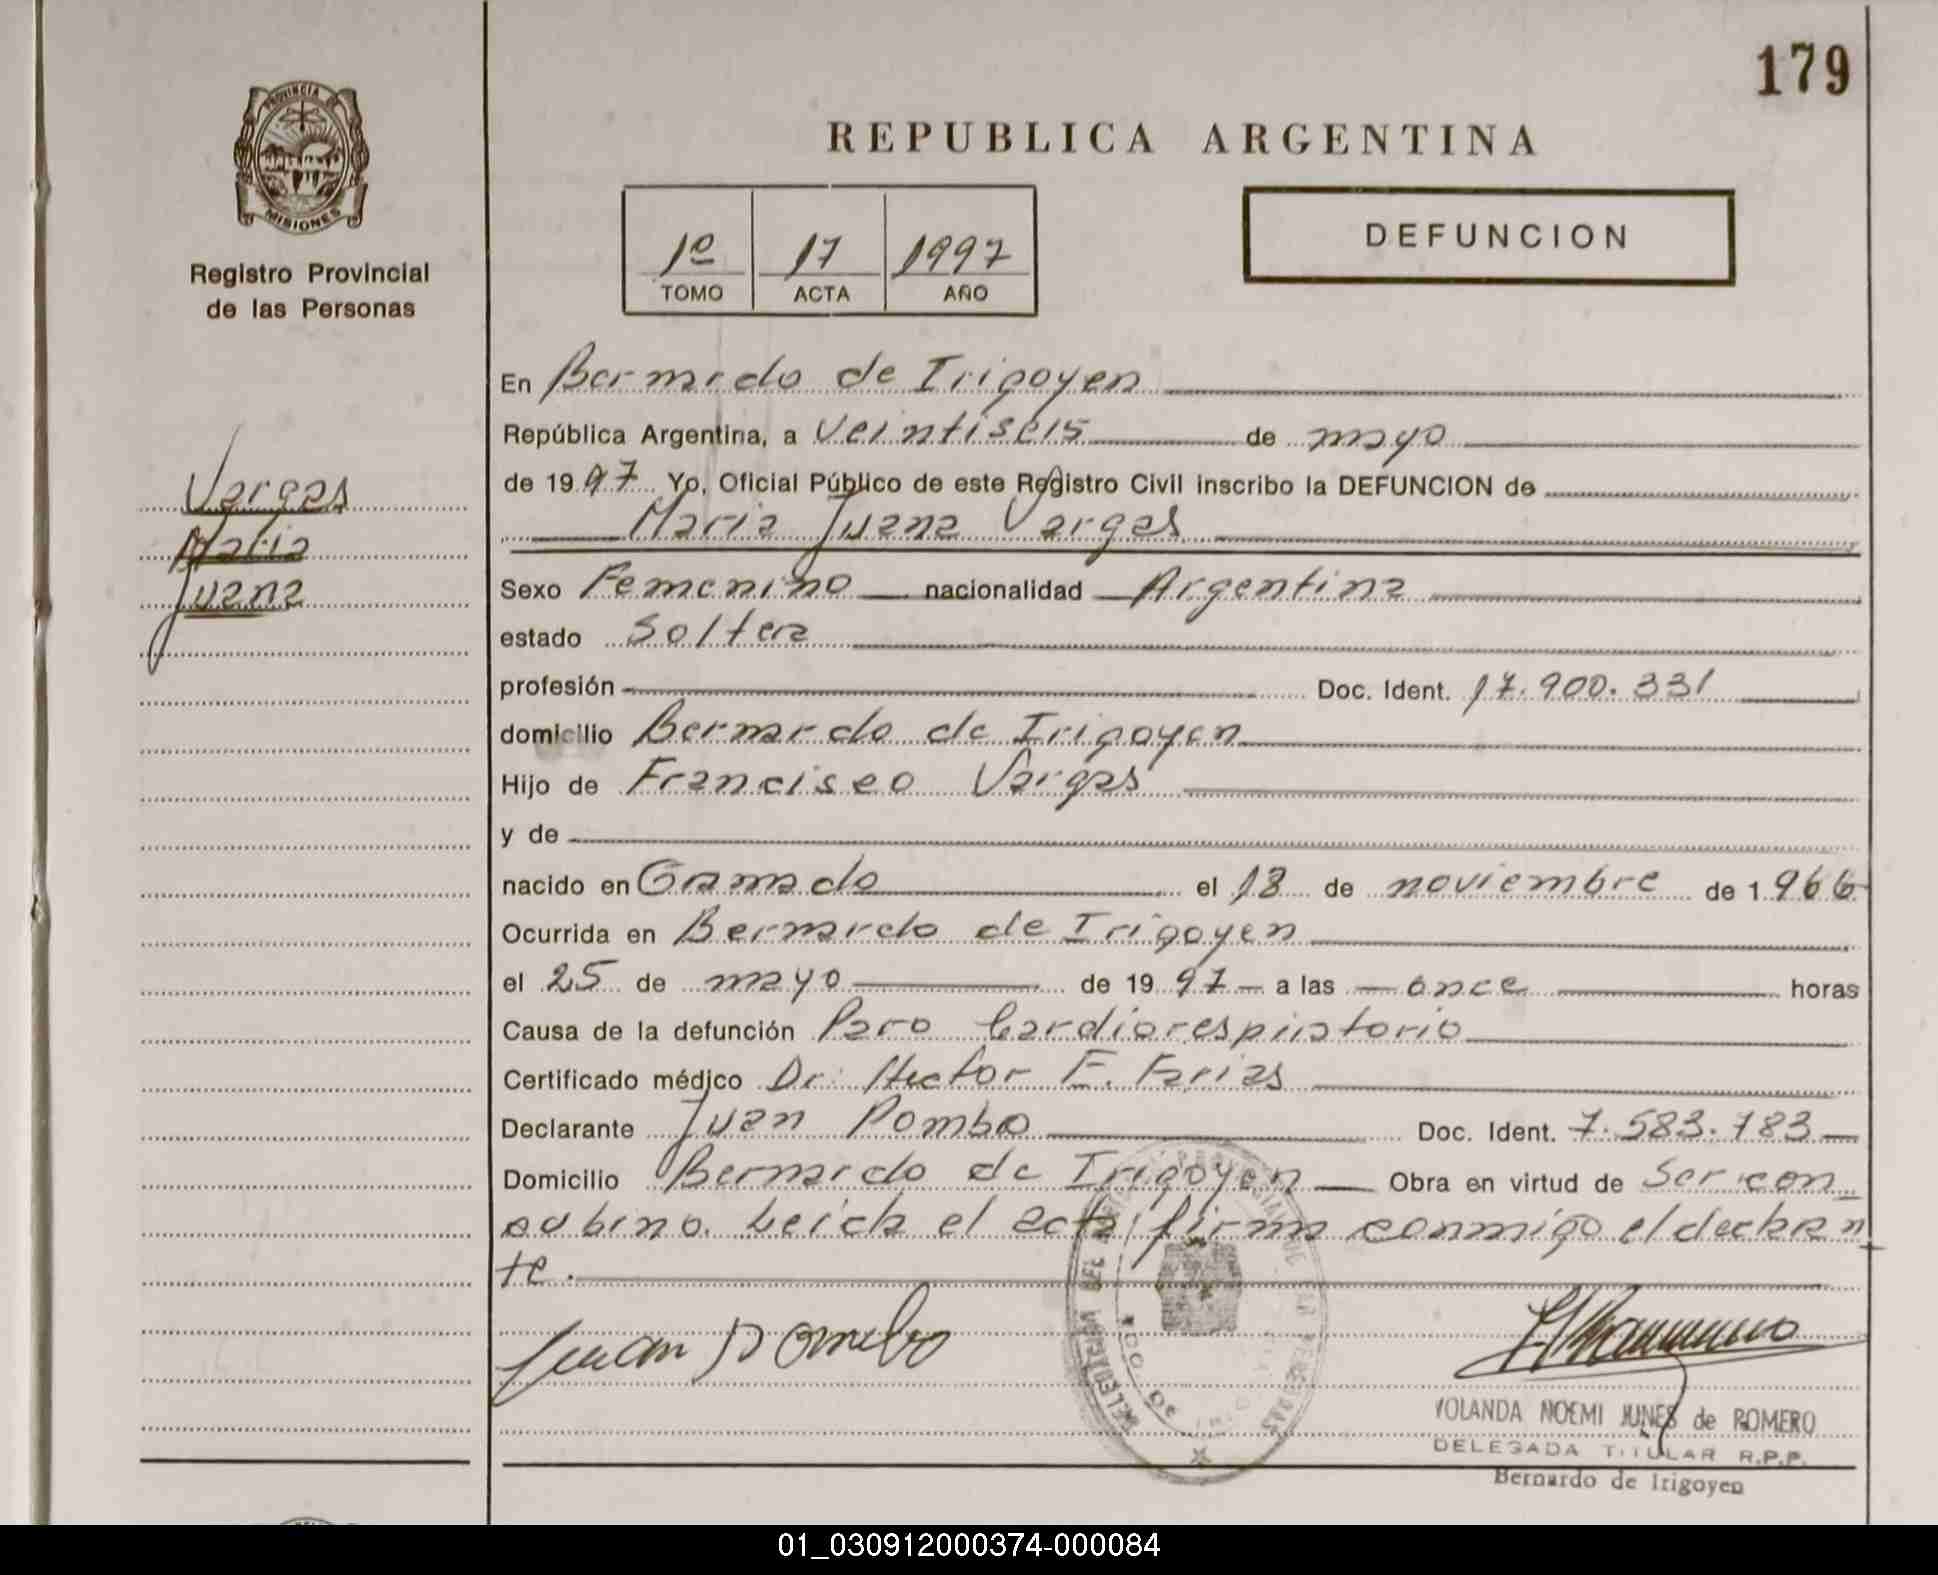 179
PROVINCIA DE
MISIONES
Registro Provincial
de las Personas
REPUBLICA ARGENTINA
1º 17 1997
TOMO ACTA AÑO
DEFUNCION
Vargas
Maria
Juana
En Bernardo de Irigoyen
República Argentina, a veintiseis de mayo
de 1997 Yo, Oficial Público de este Registro Civil inscribo la DEFUNCION de
Maria Juana Vargas
Sexo Femenino nacionalidad Argentina
estado Soltera
profesión Doc. Ident. 17.900.331
domicilio Bernardo de Irigoyen
Hijo de Francisco Vargas
y de
nacido en Gramado el 18 de noviembre de 1.966
Ocurrida en Bernardo de Irigoyen
el 25 de mayo de 1997 a las once horas
Causa de la defunción Paro Cardiorespiratorio
Certificado médico Dr. Hector E. Farias
Declarante Juan Pombo Doc. Ident. 7.583.783
Domicilio Bernardo de Irigoyen Obra en virtud de Ser con_
cubino. Leida el acta, firma conmigo el declaran_
te.
Juan Pombo
YOLANDA NOEMI JUNES de ROMERO
DELEGADA TITULAR R.P.P.
Bernardo de Irigoyen
01_030912000374-000084